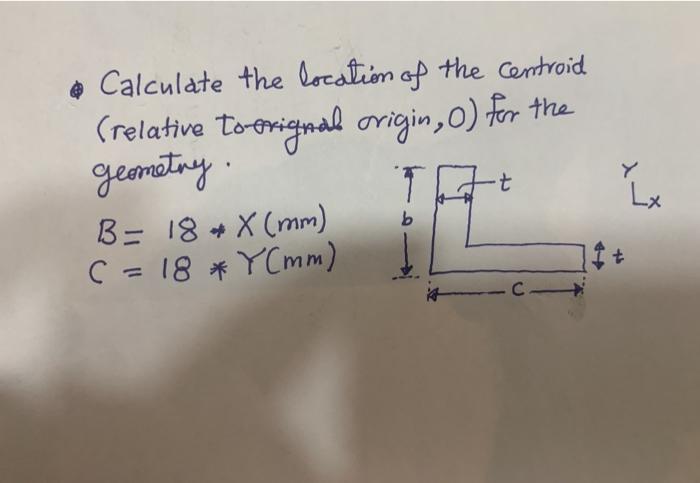 Calculate the location of the centroid
(relative to orignal origin, O) for the
geometry.
B = 18 * X (mm)
C = 18 * Y (mm)
b
t
Y
X
t
C